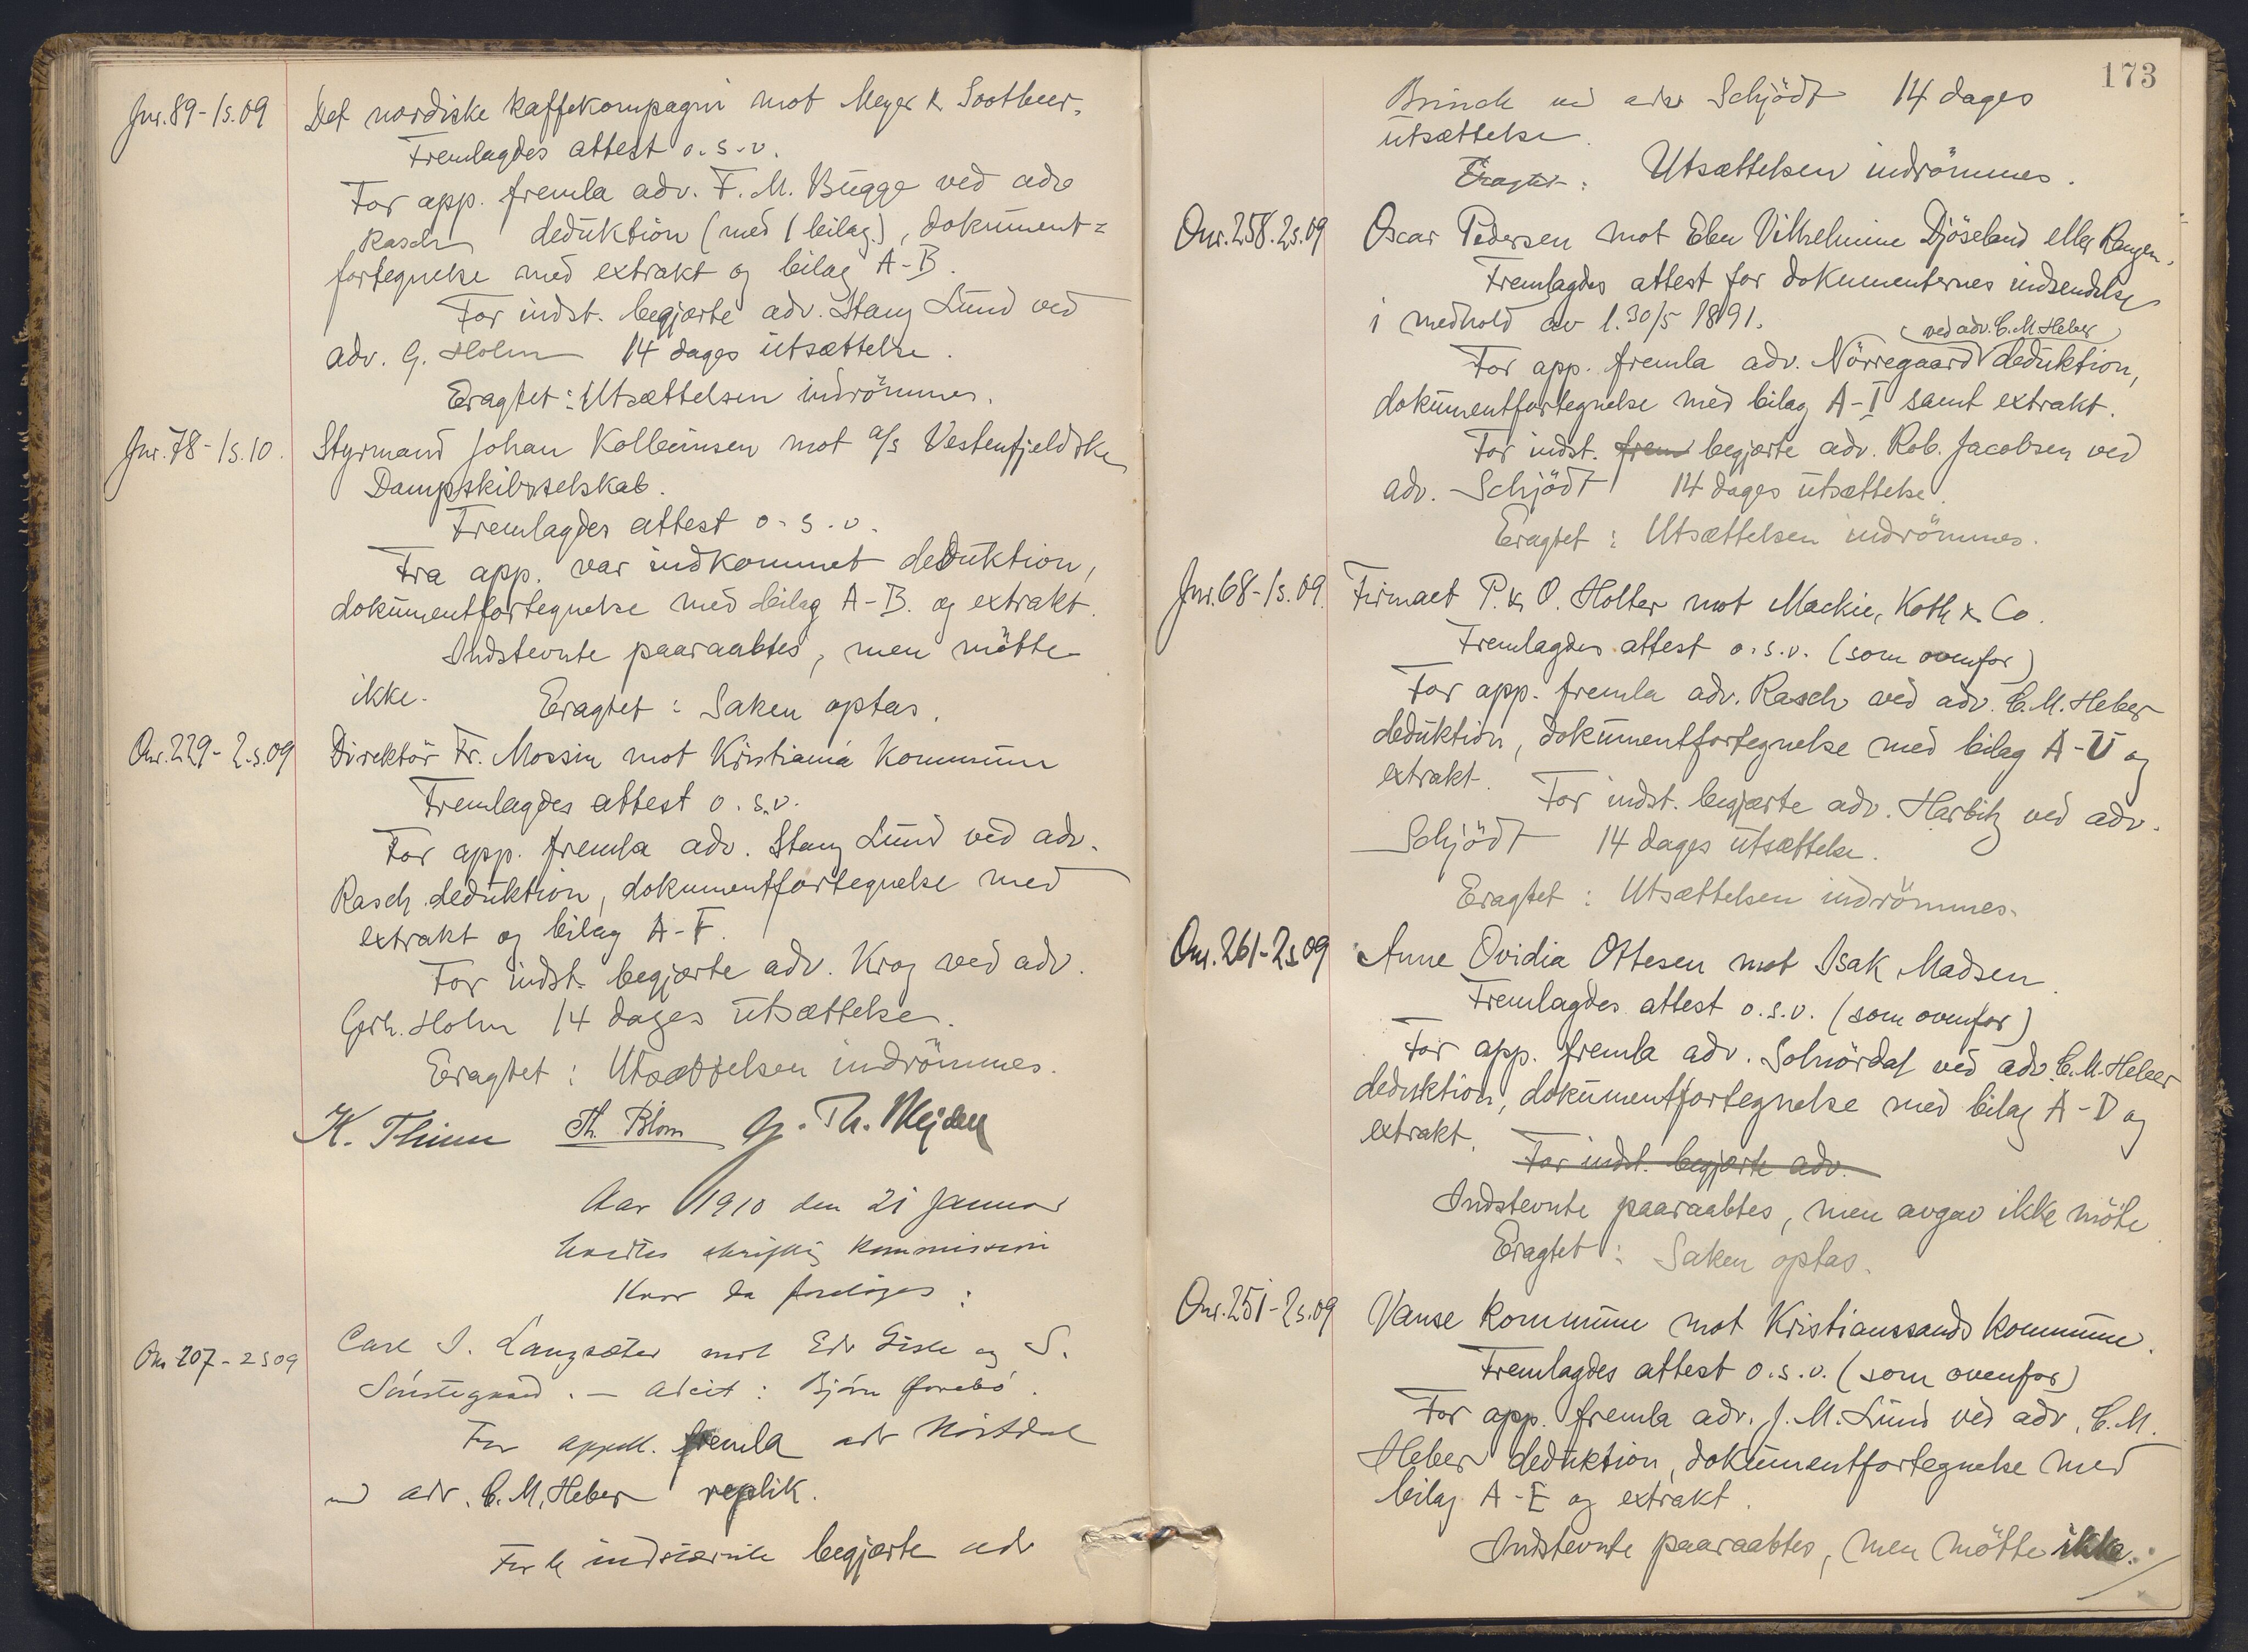 Jnr. 89 - 1s. 09 Det nordiske kaffekompagni mot Meyer & Sootbeer.
Fremlagdes attest o. s. v.
For app. fremla adv. F. M. Bügge ved adv
Rasch deduktion (med 1 bilag), dokument=
fortegnelse med extrakt og bilag A-B.
For indst. begjærte adv. Stang Lund ved
adv. G. Holm 14 dages utsættelse.
Eragtet: Utsættelsen indrömmes.
Jnr. 78 - 1s. 10. Styrmand Johan Kolbeinsen mot a/s Vestenfjeldske
Dampskibsselskab.
Fremlagdes attest o. s. v.
Fra app. var indkommet deduktion,
dokumentfortegnelse med bilag A-B. og extrakt.
Indstevnte paaraabtes, men mötte
ikke. Eragtet: Saken optas.
Onr. 229 - 2.s. 09 Direktör Fr. Mossin mot Kristiania kommune
Fremlagdes attest o. s.v.
For app. fremla adv. Stang Lund ved adv.
Rasch deduktion, dokumentfortegnelse med
extrakt og bilag A-F.
For indst. begjærte adv. Krog ved adv.
Gerh. Holm 14 dages utsættelse.
Eragtet: Utsættelsen indrömmes.
K. Thinn Th. Blom G. Th. Mejdell
Aar 1910 den 21 Januar
holdtes skriftlig kommission
hvor da foretoges:
Onr 207 - 2 s 09 Carl I. Langsæter mot Edv og S.
For appell. fremla adv
ved adv. C. M. Heber replik.
For de indstævnte begjærte adv
173
Brinch ved adv Schjödt 14 dages
utsættelse.
Eragtet: Utsættelsen indrömmes.
Onr. 258. 2s. 09 Oscar Pedersen mot Elen Vilhelmine Djöseland eller
Fremlagdes attest for dokumenternes indsendelse
i medhold av l. 30/5 1891.
ved adv. C. M. Heber
For app. fremla adv. Nörregaard deduktion,
dokumentfortegnelse med bilag A-I samt extrakt.
For indst. frem begjærte adv. Rob. Jacobsen ved
adv. Schjödt 14 dages utsættelse.
Eragtet: Utsættelsen indrömmes.
Jnr. 68 - 1s. 09. Firmaet P. & O. Holter mot Mackie, Koth & Co.
Fremlagdes attest o. s. v. (som ovenfor)
For app. fremla adv. Rasch ved adv. C. M. Heber
deduktion, dokumentfortegnelse med bilag A-U og
extrakt. For indst. begjærte adv. Harbitz ved adv.
Schjödt 14 dages utsættelse.
Eragtet: Utsættelsen indrömmes.
Onr. 261 - 2s 09 Anne Ovidia Ottesen mot Isak Madsen.
Fremlagdes attest o. s. v. (som ovenfor)
For app. fremla adv. Solnördal ved adv. C. M. Heber
deduktion, dokumentfortegnelse med bilag A-D og
extrakt.
For indst. begjærte adv.
Indstevnte paaraabtes, men avgav ikke möte
Eragtet: Saken optas.
Onr. 251 - 2s. 09 Vanse kommune mot Kristianssands kommune.
Fremlagdes attest o. s. v. (som ovenfor)
For app. fremla adv. J. M. Lund ved adv. C. M.
Heber deduktion, dokumentfortegnelse med
bilag A-E og extrakt.
Indstevnte paaraabtes, men mötte ikke.